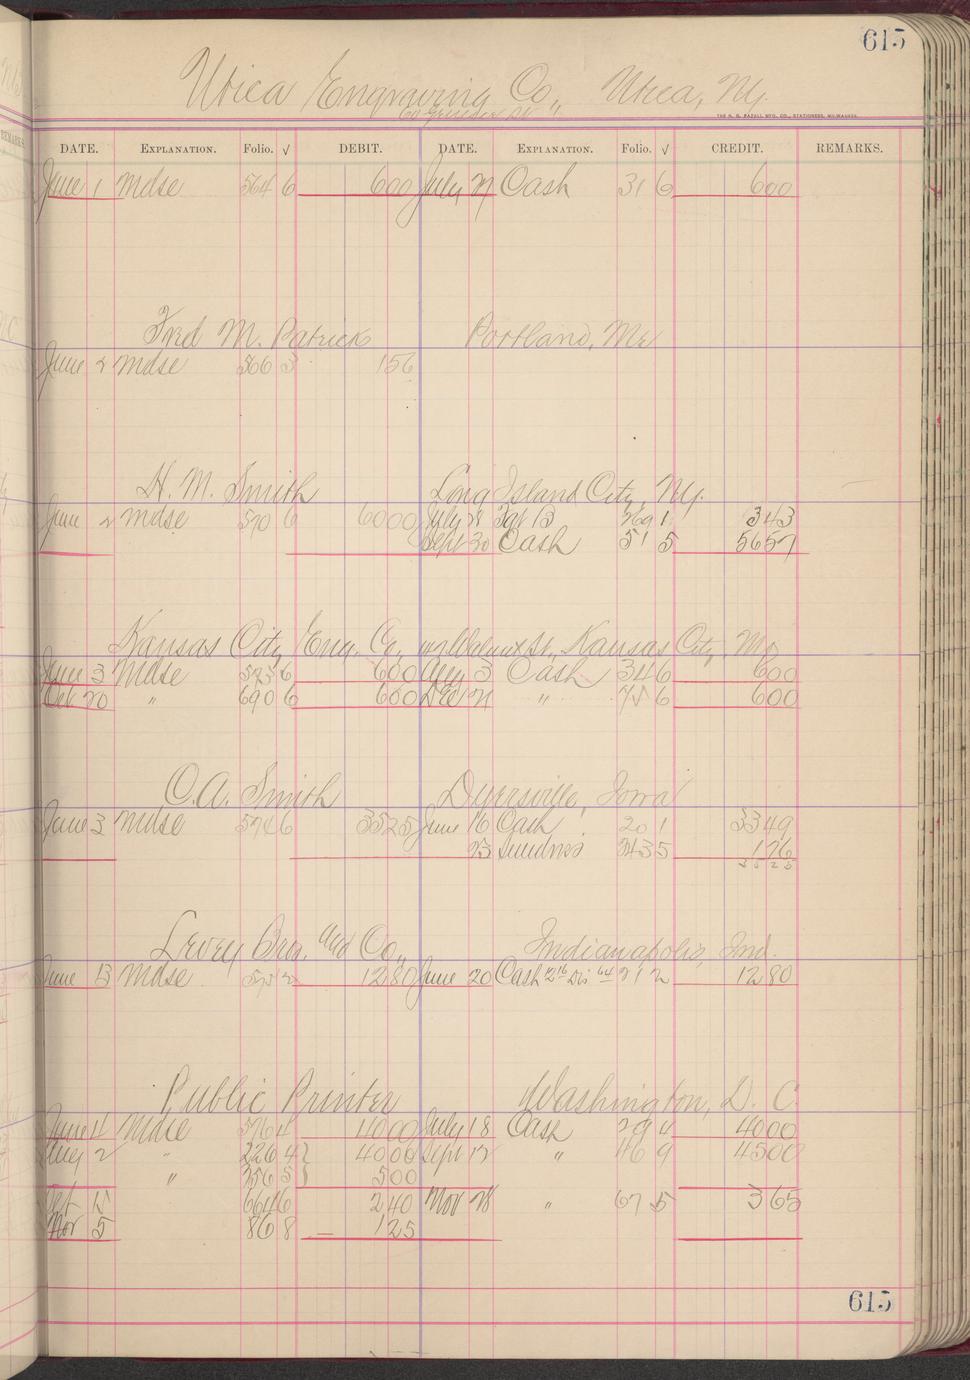 615
Utica Engraving Co., Utica, Ny.
60 Genesee St.
THE H. G. RAZALL MFG. CO., STATIONERS, MILWAUKEE.
DATE. EXPLANATION. Folio. √ DEBIT. DATE. EXPLANATION. Folio. √ CREDIT. REMARKS.
June 1 Mdse 564 6 600 July 27 Cash 31 6 600
Fred M. Patrick Portland, Me
June 2 Mdse 566 3 156
H. M. Smith Long Island City, Ny.
June 2 Mdse 570 6 6000 July 28 269 1 343
Sept 30 Cash 51 5 5657
Kansas City Eng. Co, Walnut St, Kansas City, Mo
June 3 Mdse 573 6 600 Aug 3 Cash 34 6 600
Oct 20 " 690 6 600 Dec 21 " 75 6 600
O. A. Smith Dyersville, Iowa
June 3 Mdse 574 6 3525 June 16 Cash 20 1 3349
23 Sundries 343 5 176
3525
Levey Bro. and Co., Indianapolis, Ind.
June 13 Mdse 575 2 1280 June 20 Cash Dis 64 21 2 1280
Public Printer Washington, D. C.
June 4 Mdse 576 4 4000 July 18 Cash 29 4 4000
Aug 2 " 226 4 } 4000 Sept 12 " 46 9 4500
" 356 5 } 500
Oct 15 664 6 240 Nov 28 " 67 5 365
Nov 5 86 8 125
615